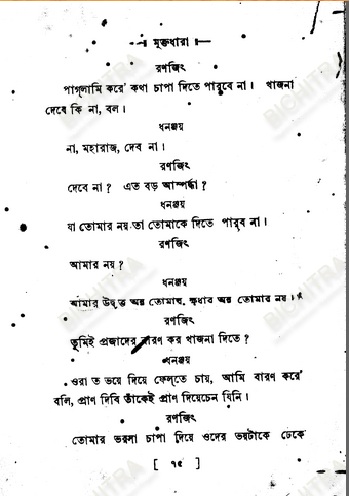 মুক্তধারা
রণজিৎ
পাগ্‌লামি করে' কথা চাপা দিতে পারবে না। খাজনা
দেবে কি না, বল।
ধনঞ্জয়
না, মহারাজ, দেব না।
রণজিৎ
দেবে না? এত বড় আস্পর্দ্ধা?
ধনঞ্জয়
যা তোমার নয় তা তোমাকে দিতে পারব না।
রণজিৎ
আমার নয়?
ধনঞ্জয়
আমার উদ্বৃত্ত অন্ন তোমার, ক্ষুধার অন্ন তোমার নয়।
রণজিৎ
তুমিই প্রজাদের বারণ কর খাজনা দিতে?
ধনঞ্জয়
ওরা ত ভয়ে দিয়ে ফেল্‌তে চায়, আমি বারণ করে'
বলি, প্রাণ দিবি তাঁকেই প্রাণ দিয়েচেন যিনি।
রণজিৎ
তোমার ভরসা চাপা দিয়ে ওদের ভয়টাকে ঢেকে
[ ৭৫ ]
BICHITRA
BICHITRA
BICHITRA
BICHITRA